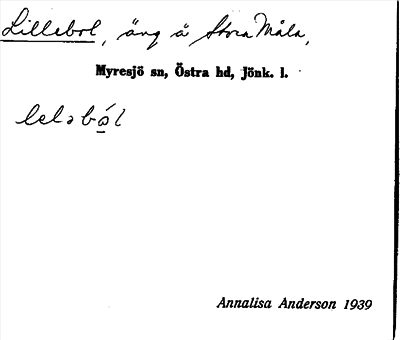 Lillebol, äng å Stora Måla,
Myresjö sn, Östra hd, Jönk. l.
leləból
Annalisa Anderson 1939